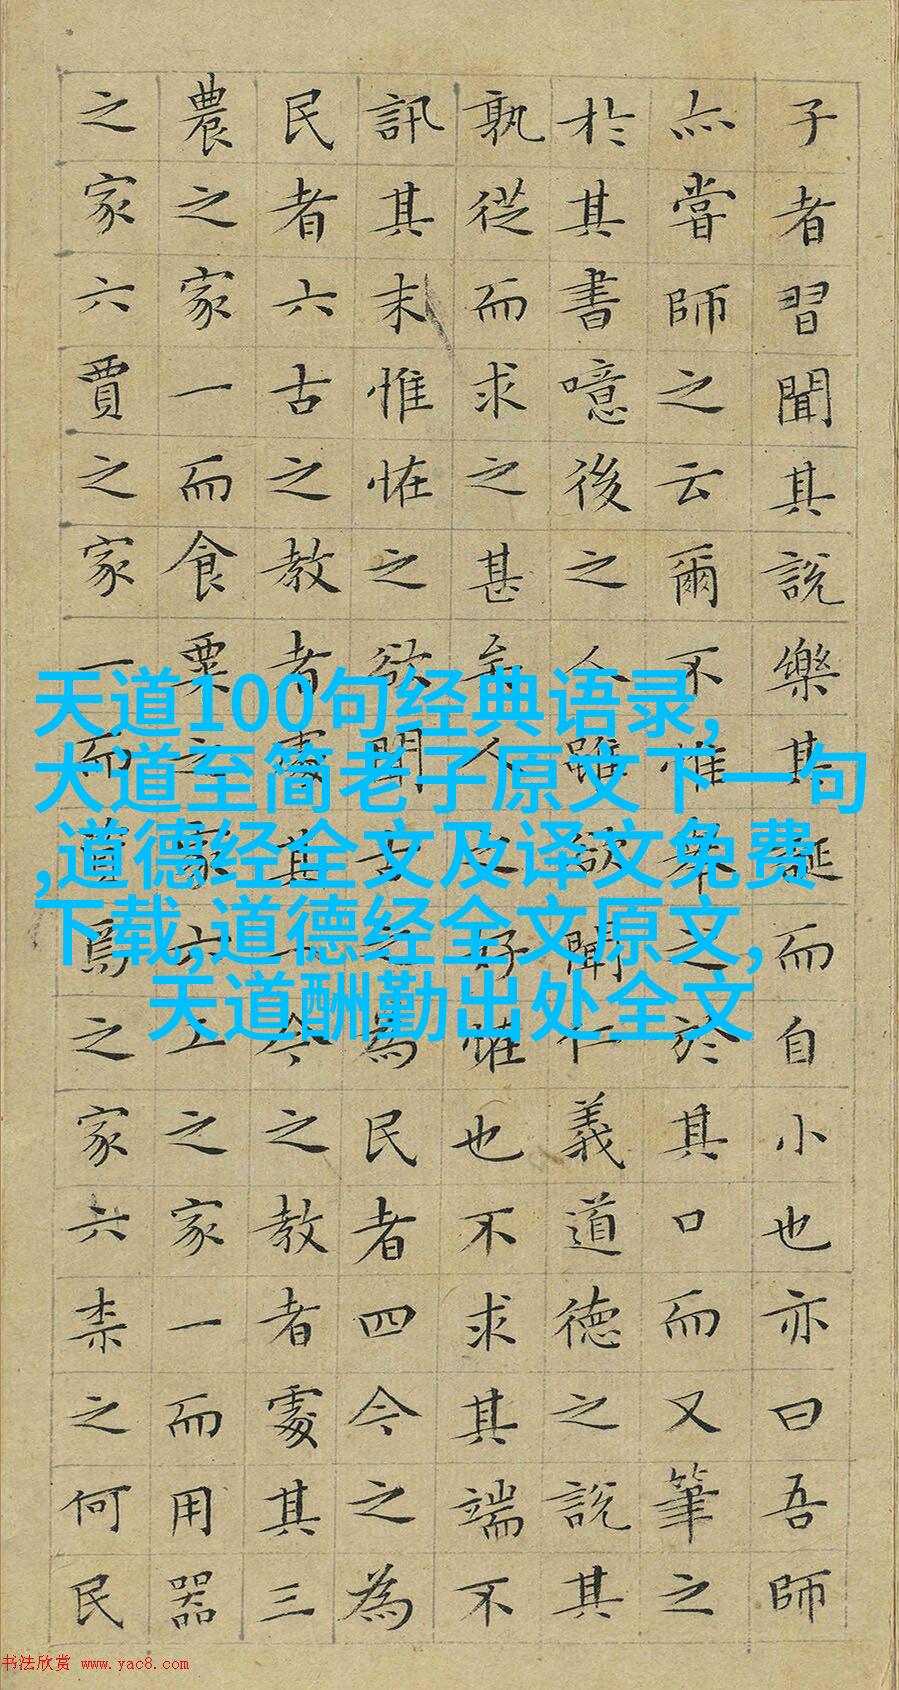 子者習聞其說樂其誕而自小也亦曰吾師
亦嘗師之云爾不惟舉之於其口而又筆之
於其書噫後之人雖欲聞仁義道德之說其
孰從而求之甚矣人之好恠也不求其端不
訊其末惟恠之欲聞古之為民者四今之為
民者六古之教者處其一今之教者處其三
農之家一而食粟之家六工之家一而用器
之家六賈之家一而資焉之家六柰之何民
天道100句经典语录,
大道至简老子原文下一句
,道德经全文及译文免费
下载,道德经全文原文,
天道酬勤出处全文
书法欣赏 www.yac8.com